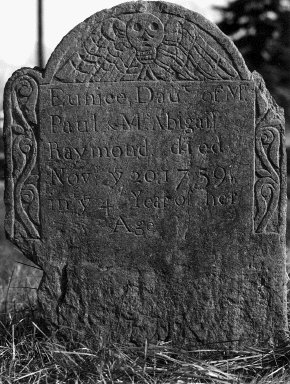 Eunice, Dauʳ of Mʳ
Paul & Mʳˢ Abigail
Raymond died
Novʳ yᵉ 20, 1759,
in yᵉ 4 Year of her
Age